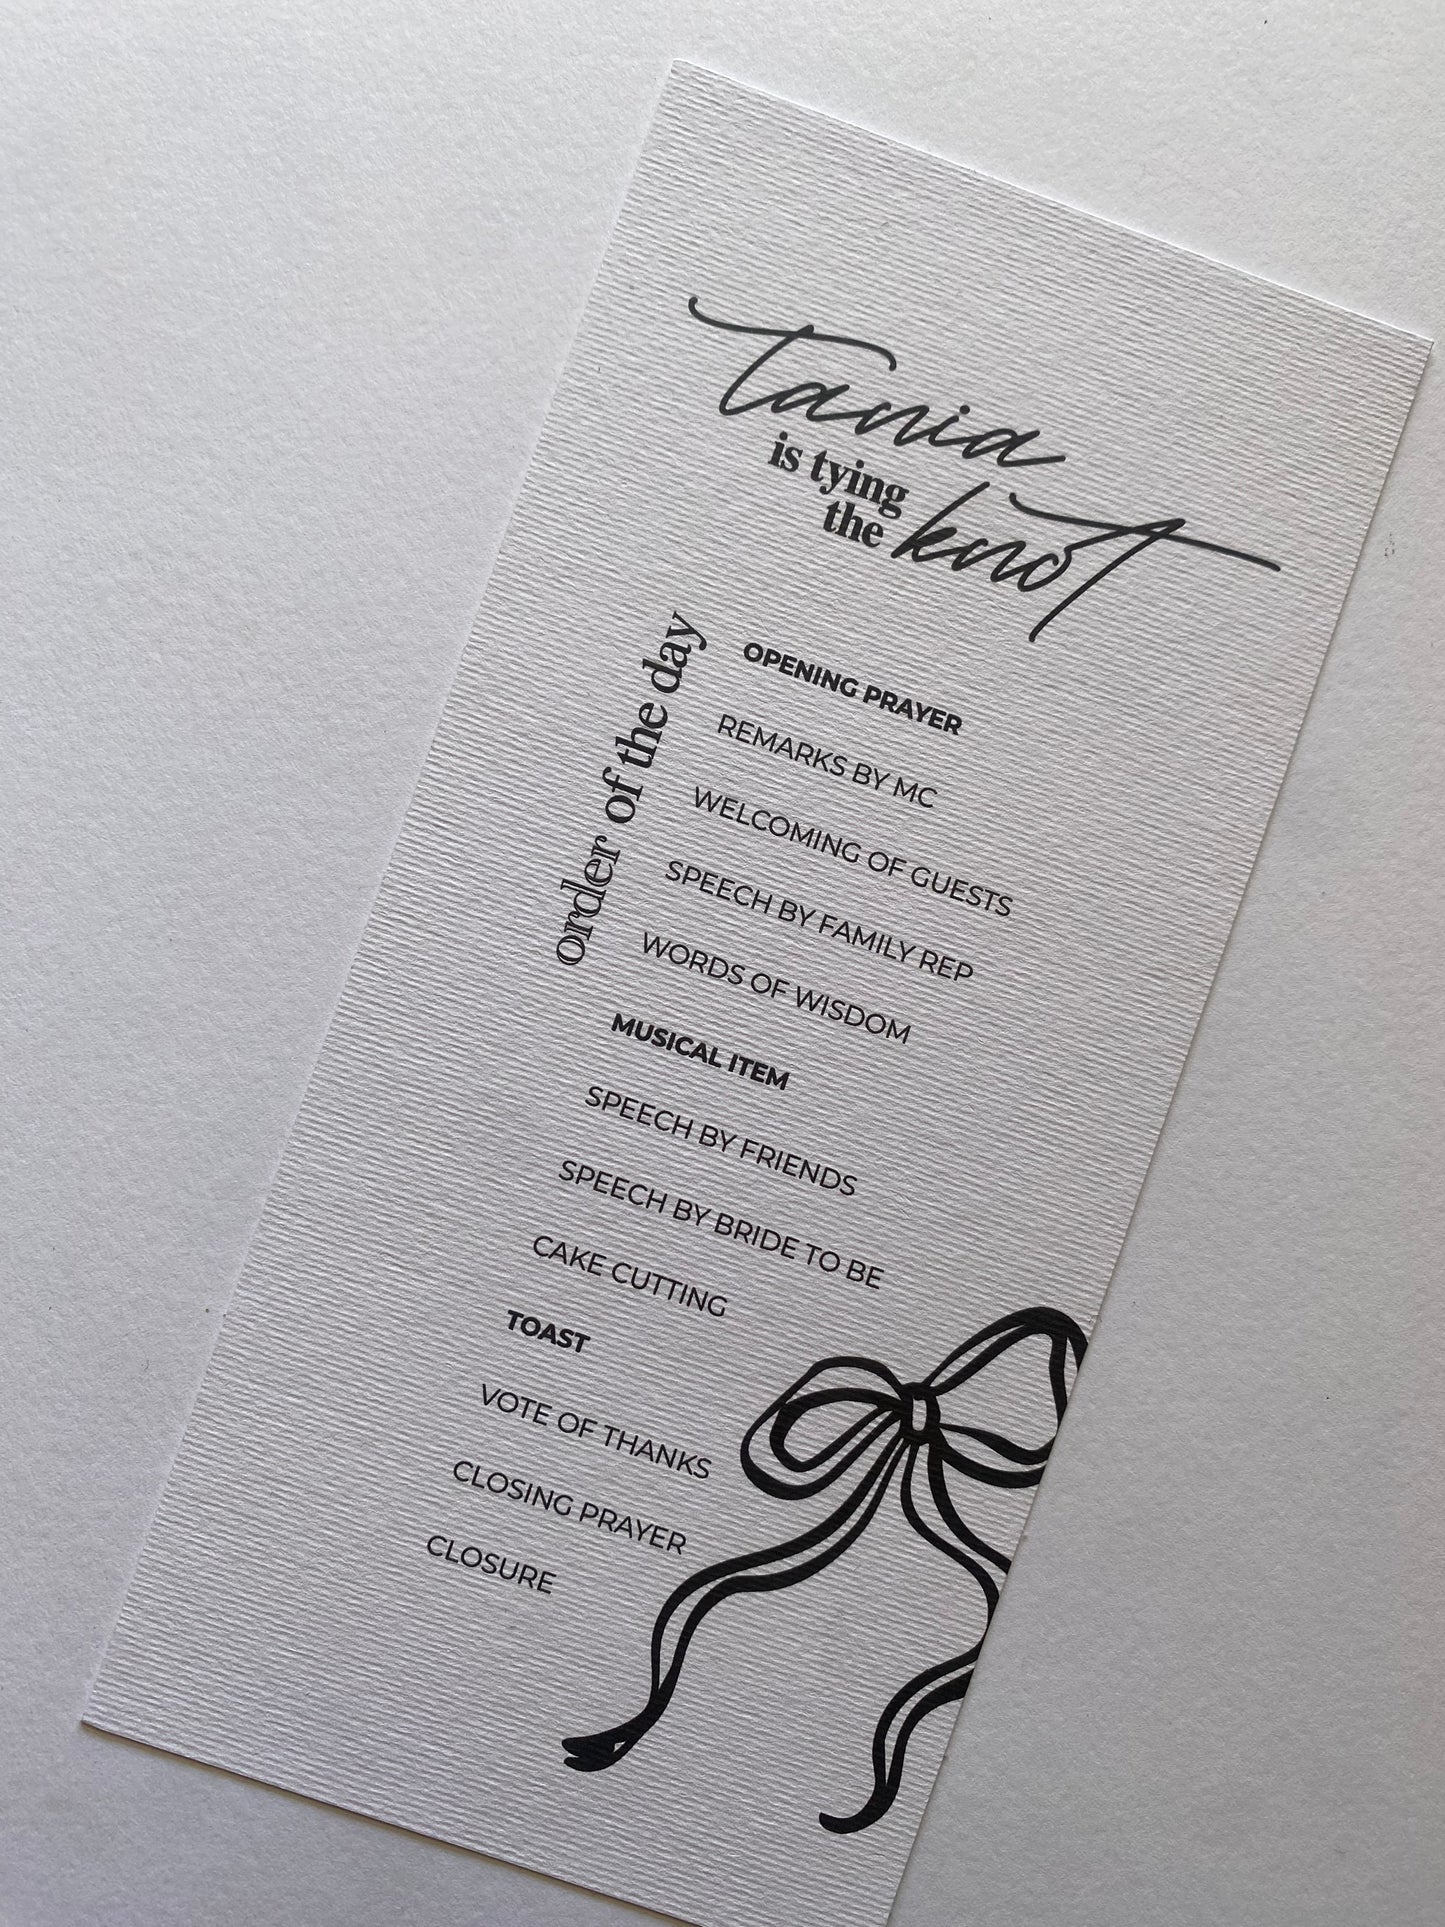 Tania
is tying
the knot
order of the day
OPENING PRAYER
REMARKS BY MC
WELCOMING OF GUESTS
SPEECH BY FAMILY REP
WORDS OF WISDOM
MUSICAL ITEM
SPEECH BY FRIENDS
SPEECH BY BRIDE TO BE
CAKE CUTTING
TOAST
VOTE OF THANKS
CLOSING PRAYER
CLOSURE